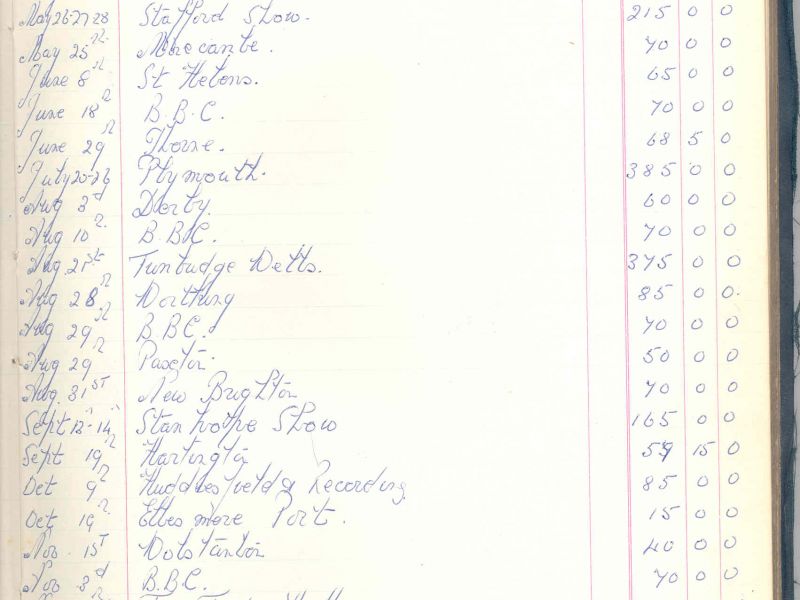 May 26-27-28 Stafford Show. 215 0 0
May 25th Morecambe. 70 0 0
June 8th St Helens. 65 0 0
June 18th B.B.C. 70 0 0
June 29th Thorne. 68 5 0
July 20-26 Plymouth. 385 0 0
Aug 3d Derby. 60 0 0
Aug 10th B.BC. 70 0 0
Aug 21st Tunbridge Wells. 375 0 0
Aug 28th Worthing 85 0 0.
Aug 29th B.B.C. 70 0 0
Aug 29th Paxton. 50 0 0
Aug. 31st New Brighton 70 0 0
Sept 12th-14th Stanhope Show 165 0 0
Sept 19th Hartington 59 15 0
Oct 9th Huddersfield & Recording 85 0 0
Oct 19th Ellesmere Port. 15 0 0
Nov. 1st Wolstanton 40 0 0
Nov 3d B.B.C. 70 0 0